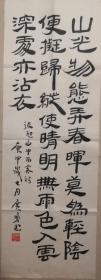 山光物態弄春暉莫為輕陰
便擬歸縱使晴明無雨色入雲
深處亦沾衣
張旭山中留客詩
庚申歲七月